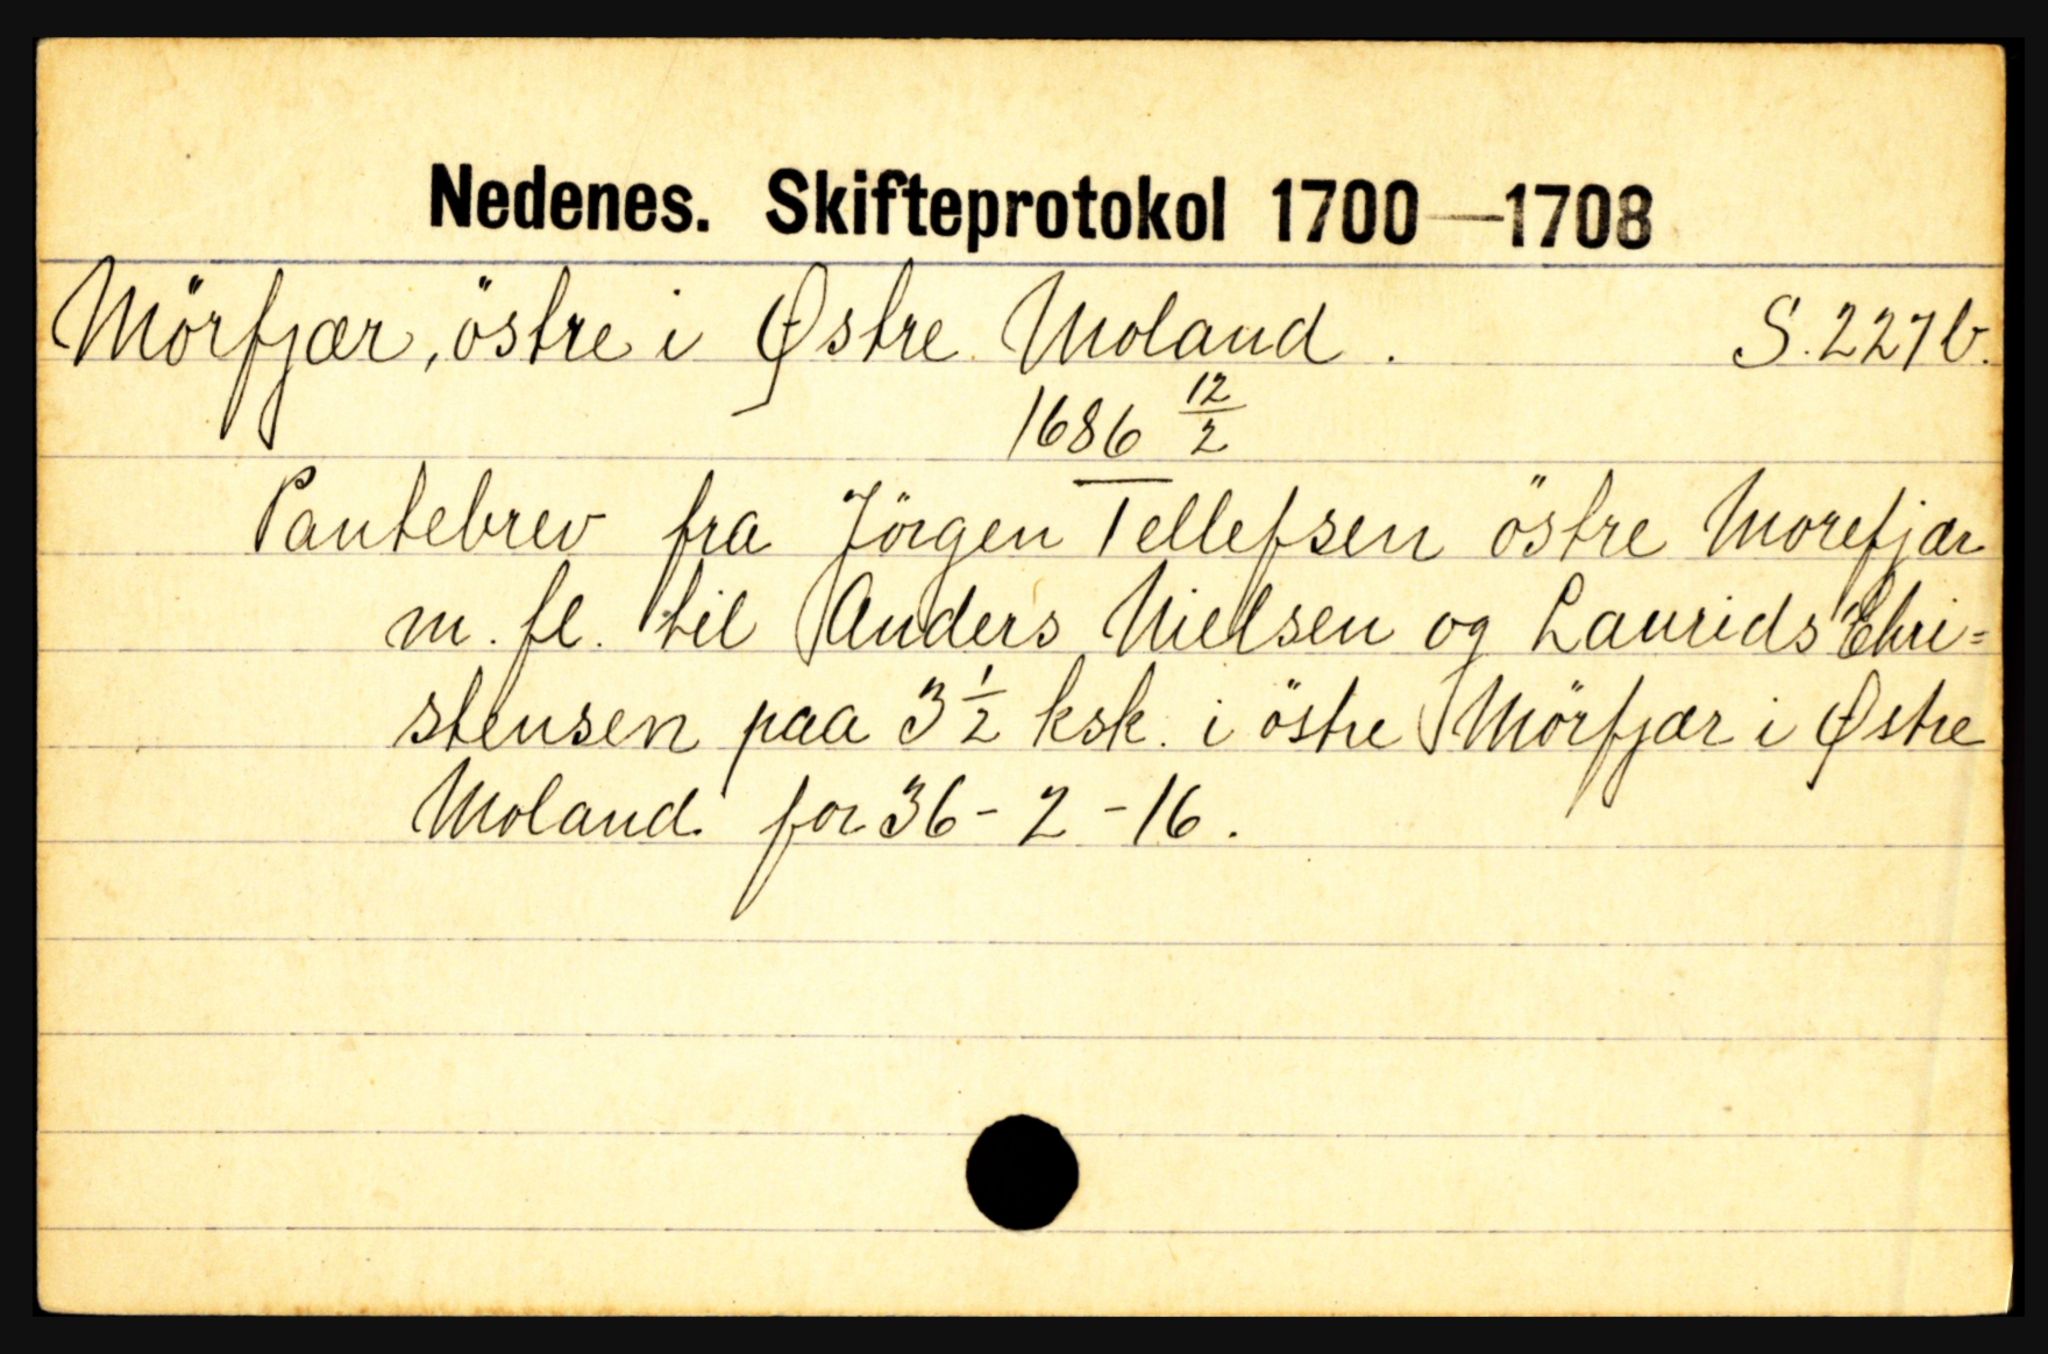 Nedenes. Skifteprotokol 1700—1708
Mörfjær, östre i Østre Moland. S. 227b.
1686 12/2
Pantebrev fra Jörgen Tellefsen östre Morefjær
m. fl. til Anders Nielsen og Laurids Chri=
stensen paa 3 1/2 ksk. i östre Mörfjær i Østre
Moland for 36 - 2 - 16.